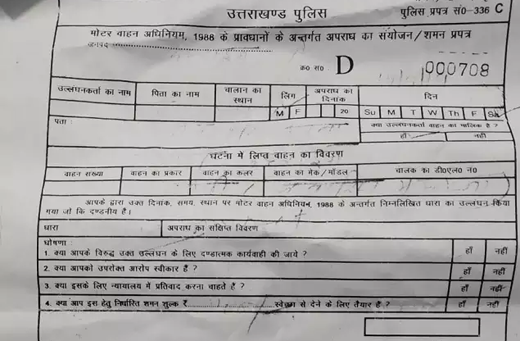 उत्तराखण्ड पुलिस
पुलिस प्रपत्र सं0-336 C
मोटर वाहन अधिनियम, 1988 के प्रावधानों के अन्तर्गत अपराध का संयोजन/शमन प्रपत्र
जनपद
क0 सं0 D 000708
उल्लंघनकर्ता का नाम पिता का नाम चालान का स्थान लिंग अपराध का दिनांक दिन
M F 20 Su M T W Th F Sa
पता : क्या उल्लंघनकर्ता वाहन का मालिक है ?
हाँ नहीं
घटना में लिप्त वाहन का विवरण
वाहन संख्या वाहन का प्रकार वाहन का कलर वाहन का मेक/मॉडल चालक का डी0एल0 न0
आपके द्वारा उक्त दिनांक, समय, स्थान पर मोटर वाहन अधिनियम, 1988 के अन्तर्गत निम्नलिखित धारा का उल्लंघन किया
गया जो कि दण्डनीय है।
धारा अपराध का संक्षिप्त विवरण
घोषणा :
1. क्या आपके विरुद्ध उक्त उल्लंघन के लिए दण्डात्मक कार्यवाही की जाये ? हाँ नहीं
2. क्या आपको उपरोक्त आरोप स्वीकार हैं ? हाँ नहीं
3. क्या इसके लिए न्यायालय में प्रतिवाद करना चाहते है ? हाँ नहीं
4. क्या आप इस हेतु निर्धारित शमन शुल्क ₹ .................... स्वेच्छा से देने के लिए तैयार है ? हाँ नहीं